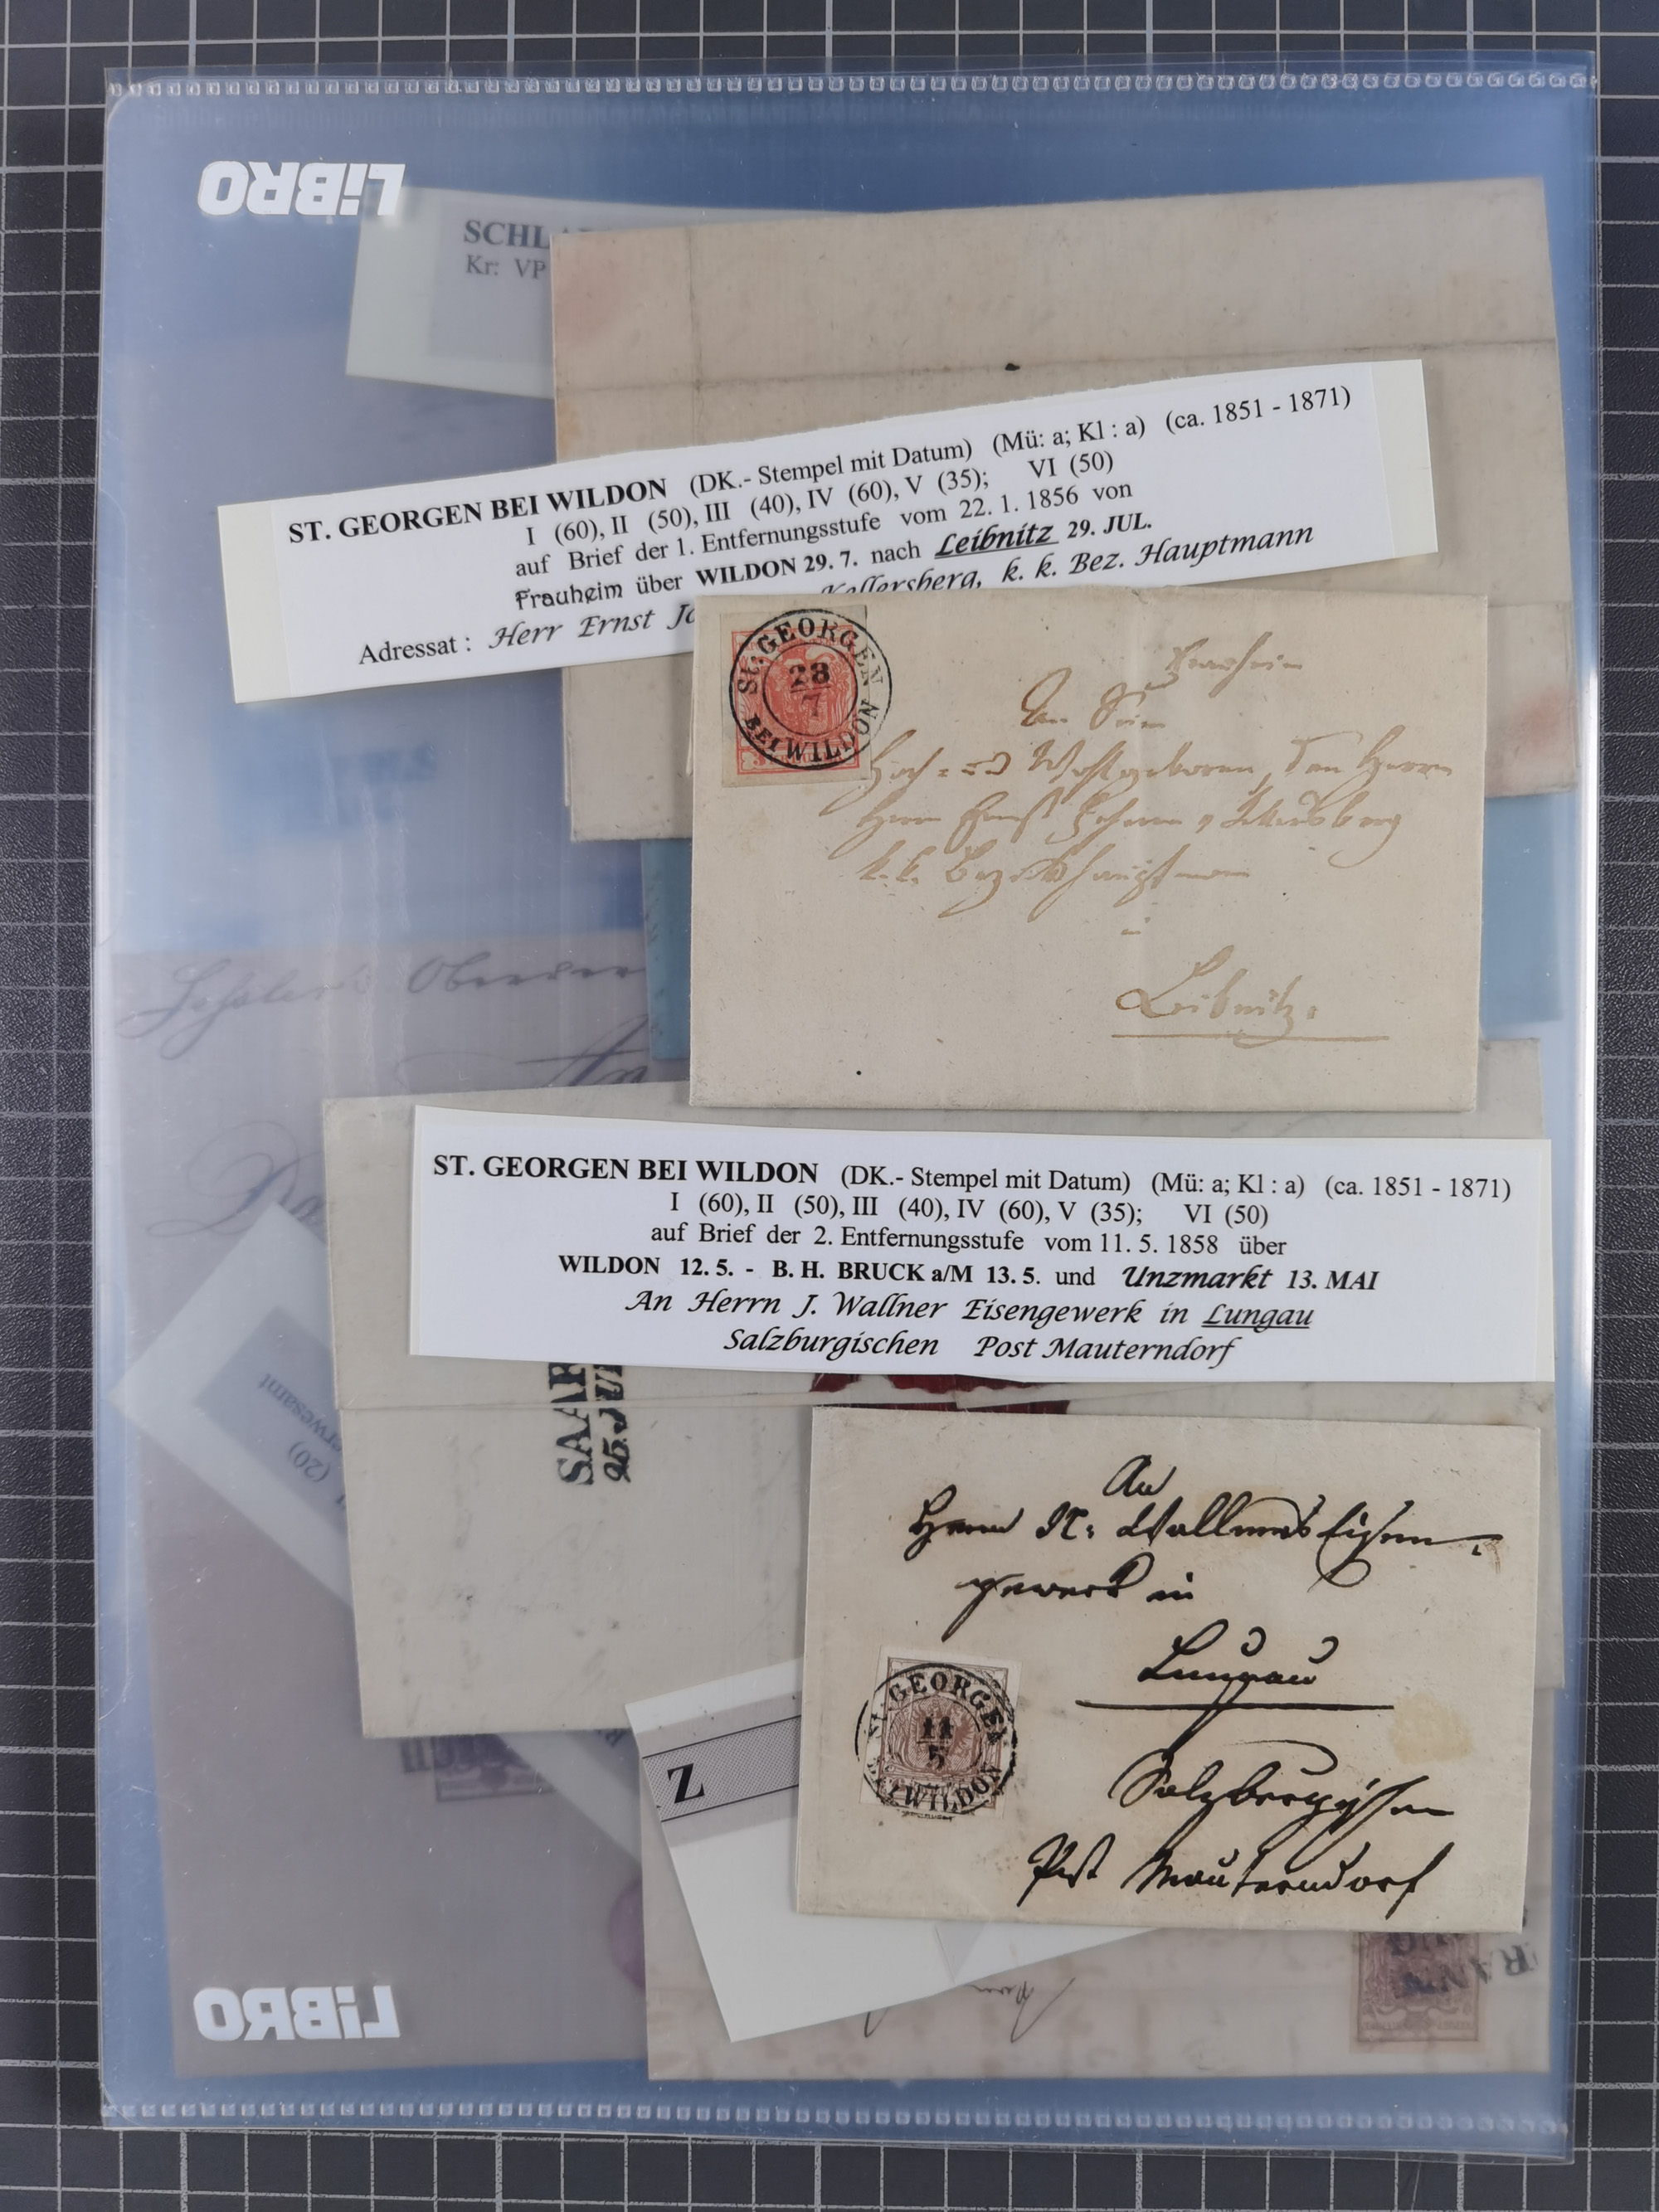 LiBRO
SCHLA
Kr: VP
ST. GEORGEN BEI WILDON (DK.- Stempel mit Datum) (Mü: a; Kl : a) (ca. 1851 - 1871)
I (60), II (50), III (40), IV (60), V (35); VI (50)
auf Brief der 1. Entfernungsstufe vom 22. 1. 1856 von
Frauheim über WILDON 29. 7. nach Leibnitz 29. JUL.
Adressat : Herr Ernst Jo Kellersberg, k. k. Bez. Hauptmann
St. GEORGEN
28
7
BEI WILDON
Frauheim
An Seine
Hoch = und Wohlgeboren, den Herrn
Herrn Ernst Kellersberg
k. k. Bezirkshauptmann
Leibnitz.
An
ST. GEORGEN BEI WILDON (DK.- Stempel mit Datum) (Mü: a; Kl : a) (ca. 1851 - 1871)
I (60), II (50), III (40), IV (60), V (35); VI (50)
auf Brief der 2. Entfernungsstufe vom 11. 5. 1858 über
WILDON 12. 5. - B. H. BRUCK a/M 13. 5. und Unzmarkt 13. MAI
An Herrn J. Wallner Eisengewerk in Lungau
Salzburgischen Post Mauterndorf
erwesamt
(20)
SAAR
25. JUL
An
Herrn J. Wallner Eisen-
gewerk in
Lungau
Salzburgischen
Post Mauterndorf
St. GEORGEN
11
5
BEI WILDON
Z
LiBRO